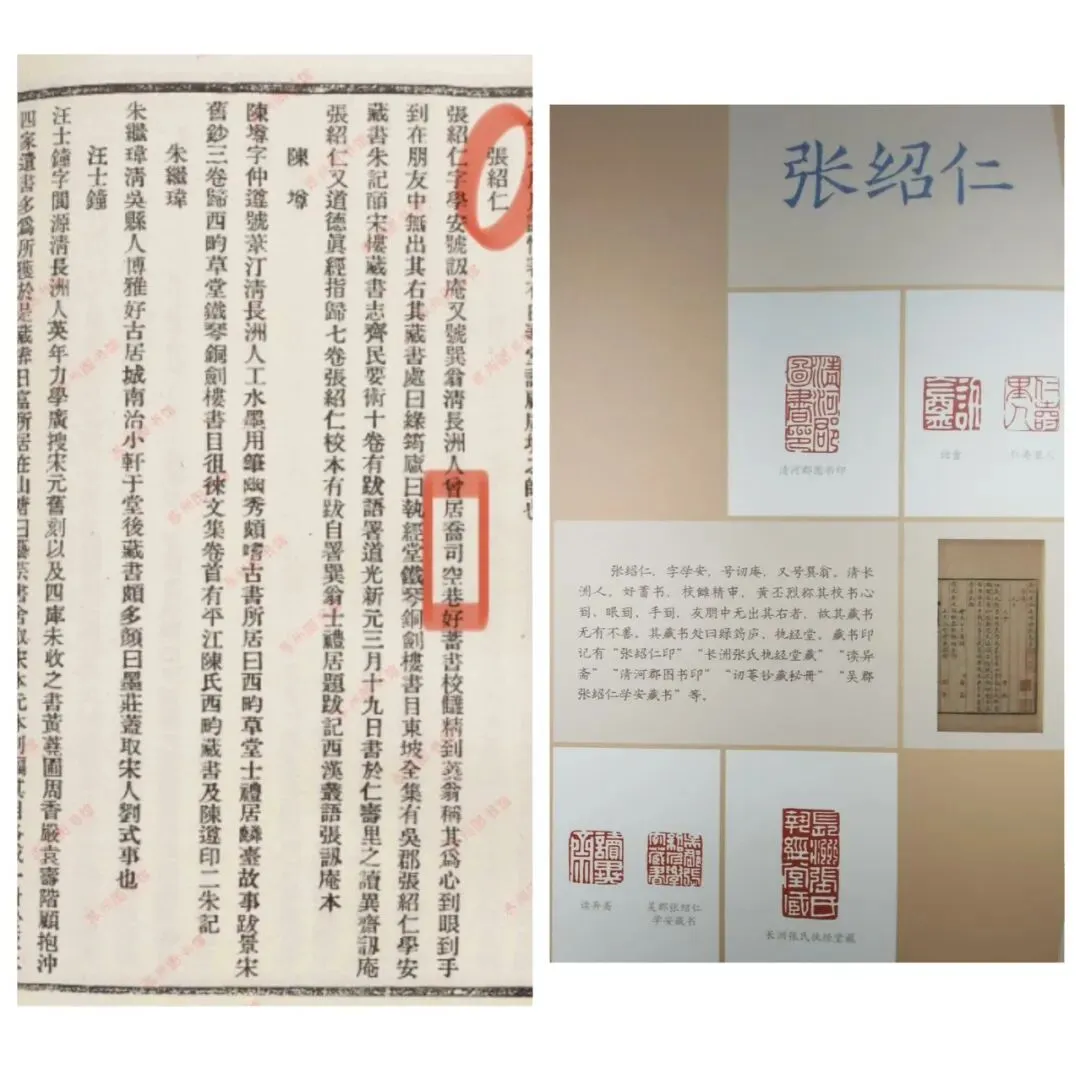 張紹仁
張紹仁字學安號訒庵又號巽翁清長洲人曾居喬司空巷好蓄書校讎精到蕘翁稱其爲心到眼到手
到在朋友中無出其右其藏書處曰綠筠廬曰執經堂鐵琴銅劍樓書目東坡全集有吳郡張紹仁學安
藏書朱記皕宋樓藏書志齊民要術十卷有跋語署道光新元三月十九日書於仁壽里之讀異齋訒庵
張紹仁又道德眞經指歸七卷張紹仁校本有跋自署巽翁士禮居題跋記西漢叢語張訒庵本
陳墫
陳墫字仲遵號葦汀清長洲人工水墨用筆幽秀頗嗜古書所居曰西畇草堂士禮居麟臺故事跋景宋
舊鈔三卷歸西畇草堂鐵琴銅劍樓書目徂徠文集卷首有平江陳氏西畇藏書及陳遵印二朱記
朱繼瑋
朱繼瑋清吳縣人博雅好古居城南治小軒于堂後藏書頗多顏曰墨莊蓋取宋人劉式事也
汪士鐘
汪士鐘字閬源清長洲人英年力學廣搜宋元舊刻以及四庫未收之書黃蕘圃周香嚴袁壽階顧抱沖
四家遺書多爲所獲於是藏弆日富所居在山塘曰藝芸書舍
张绍仁
清河郡圖書印
清河郡图书印
訒盦
讱盦
仁壽里人
仁寿里人
张绍仁，字学安，号讱庵，又号巽翁。清长
洲人，好蓄书，校雠精审，黄丕烈称其校书心
到、眼到、手到，友朋中无出其右者，故其藏书
无有不善。其藏书处曰绿筠庐、执经堂。藏书印
记有“张绍仁印”“长洲张氏执经堂藏”“读异
斋”“清河郡图书印”“讱菴钞藏秘册”“吴郡
张绍仁学安藏书”等。
讀異齋
读异斋
吴郡张绍仁
学安藏书
長洲張氏執經堂藏
长洲张氏执经堂藏